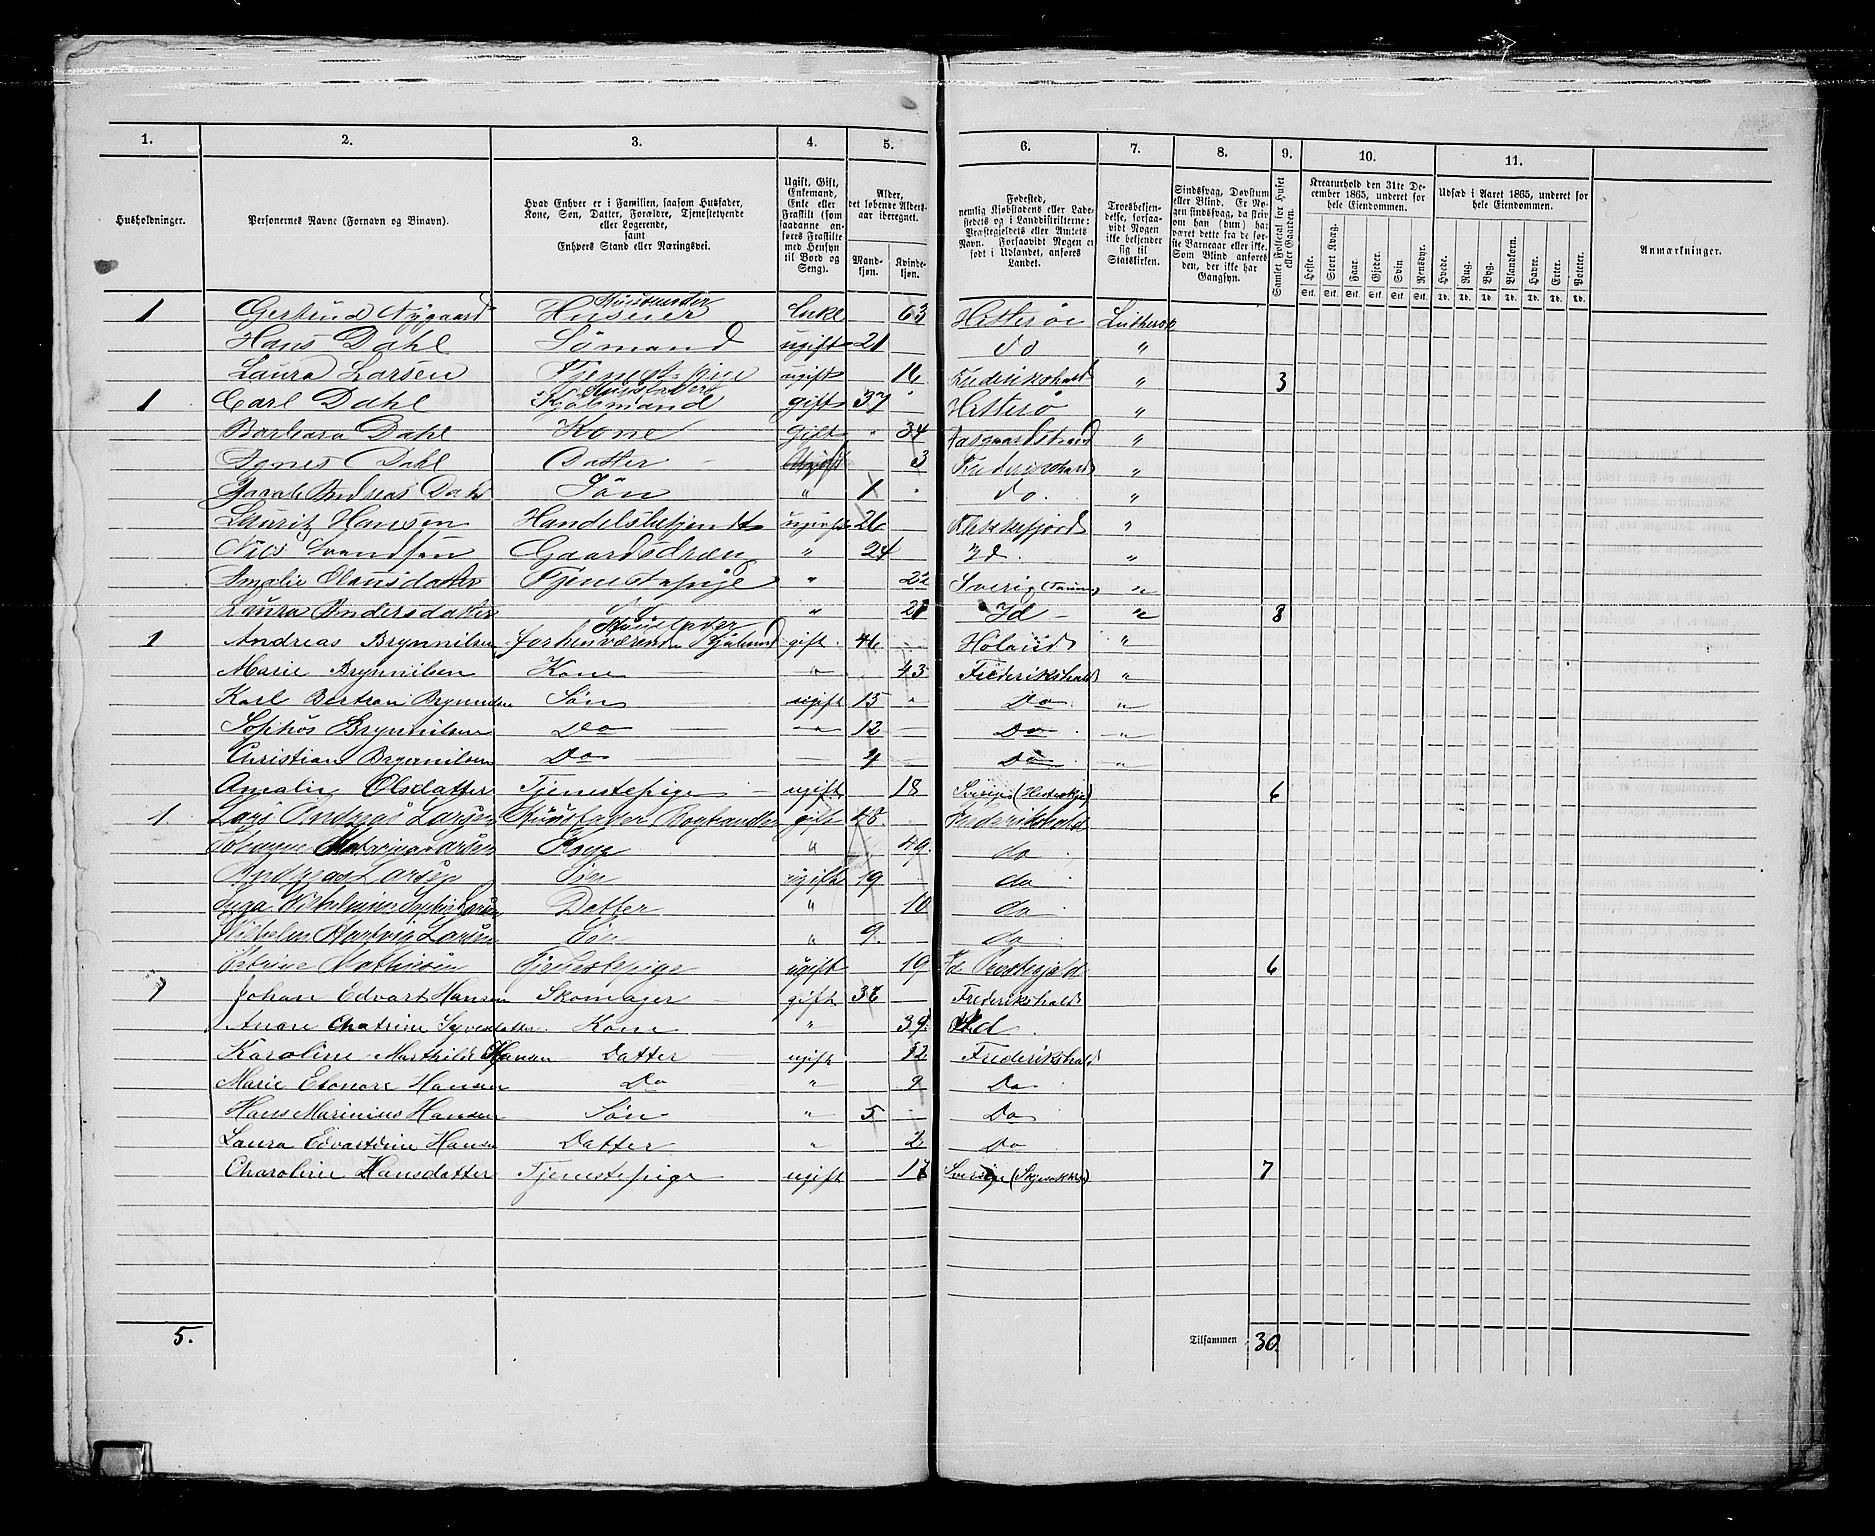 1. 2. 3. 4. 5. 6. 7. 8. 9. 10. 11.
Husholdninger.
Personernes Navne (Fornavn og Binavn).
Hvad Enhver er i Familien, saasom Husfader, Kone, Søn, Datter, Forældre, Tjenestetyende eller Logerende, samt Enhvers Stand eller Næringsvei.
Ugift, Gift, Enkemand, Enke eller Fraskilt (som saadanne anføres Fraskilte med Hensyn til Bord og Seng).
Alder, det løbende Aldersaar iberegnet.
Mandkjøn. Kvindekjøn.
Fødested, nemlig Kjøbstadens eller Ladestedets og i Landdistrikterne: Præstegjeldets eller Amtets Navn. Forsaavidt Nogen er født i Udlandet, anføres Landet.
Troesbekjendelse, forsaavidt Nogen ikke bekjender sig til Statskirken.
Sindssvag, Døvstum eller Blind. Er Nogen sindssvag, da skriv om han (hun) har været dette fra de første Barneaar eller ikke. Som Blind anføres den, der ikke har Gangsyn.
Samlet Folketal for Huset eller Gaarden.
Kreaturhold den 31te December 1865, underet for hele Eiendommen.
Heste. Stort Kvæg. Faar. Gjeder. Svin. Rensdyr.
Stk. Stk. Stk. Stk. Stk. Stk.
Udsæd i Aaret 1865, underet for hele Eiendommen.
Hvede. Rug. Byg. Blandkorn. Havre. Erter. Poteter.
Td. Td. Td. Td. Td. Td. Td.
Anmærkninger.
1 Nygaard Enke 63 Hitterøe Luthersk
Hans Dahl Sømand ugift 21 do "
Laura Larsen ugift 16 Frederikshald " 3
1 Carl Dahl Kjøbmand gift 37 Hitterø "
Barbara Dahl Kone gift 34 Aasgaardstrand "
Agnes Dahl Datter 3 Frederikshald "
Jacob Andreas Dahl Søn " 1 do. "
Lauritz Hansen Handelsbetjent ugift 26 Flekkefjord "
Nils Svendsen Gaardsdreng " 24 Id. "
Amalie Olausdatter Tjenestepige " 22 Sverig "
Laura Andersdatter " Id - " 8
1 Andreas Brynnilsen Huusfader forhenværende gift 46 Høland "
Marie Brynnilsen Kone " 43 Frederikshald "
Karl Brynnilsen Søn ugift 15 " Do. "
Sophus Brynnilsen Do " 12 - Do "
Christian Brynnilsen Do - 4 - Do "
Amalie Olsdatter Tjenestepige ugift 18 Sverige 6
1 Lars Andreas Larsen Huusfader gift 48 Frederikshald
Larsen Kone " 49 do
Andreas Larsen Søn ugift 19 do
Datter " 10 do
Vilhelm Hartvig Larsen Søn " 9. do
Petrine Mathiesen Tjenestepige ugift 19 Id Præstegjæld 6
1 Johan Edvart Hansen Skomager - gift 36 - Frederikshald
Anne Chatrine Kone " 39 Id
Karoline Marthilde Hansen Datter ugift 12 Frederikshald
Marie Elonore Hansen Do " 9 Do
Hans Marinius Hansen Søn " 5 - Do
Laura Edvardine Hansen Datter " 2 Do
Charoline Hansdatter Tjenestepige ugift 17 Sverige 7
5. Tilsammen 30.